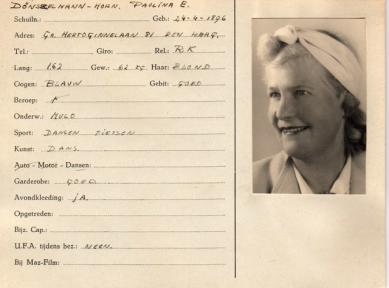 DÖNSZELMANN-HORN. PAULINA E.
Schuiln.: Geb.: 24-4-1896
Adres: GR. HERTOGINNELAAN 81 DEN HAAG.
Tel.: Giro: Rel.: RK
Lang: 162 Gew.: 62 KG Haar: BLOND
Oogen: BLAUW Gebit: GOED
Beroep:
Onderw.: MULO
Sport: DANSEN FIETSEN
Kunst: DANS.
Auto - Motor - Dansen:
Garderobe: GOED
Avondkleeding: JA.
Opgetreden:
Bijz. Cap.:
U.F.A. tijdens bez.: NEEN.
Bij Maz-Film: